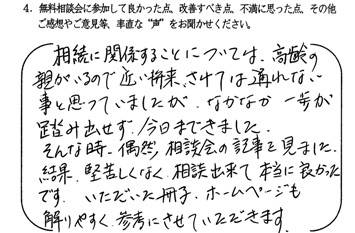 4. 無料相談会に参加して良かった点、改善すべき点、不満に思った点、その他
ご感想やご意見等、率直な“声”をお聞かせください。
相続に関係することについては、高齢の
親がいるので近い将来、さけては通れない
事と思っていましたが、なかなか一歩が
踏み出せず、今日まできました。
そんな時、偶然、相談会の記事を見ました。
結果、堅苦しくなく、相談出来て本当に良かった
です。いただいた冊子、ホームページも
解りやすく、参考にさせていただきます。